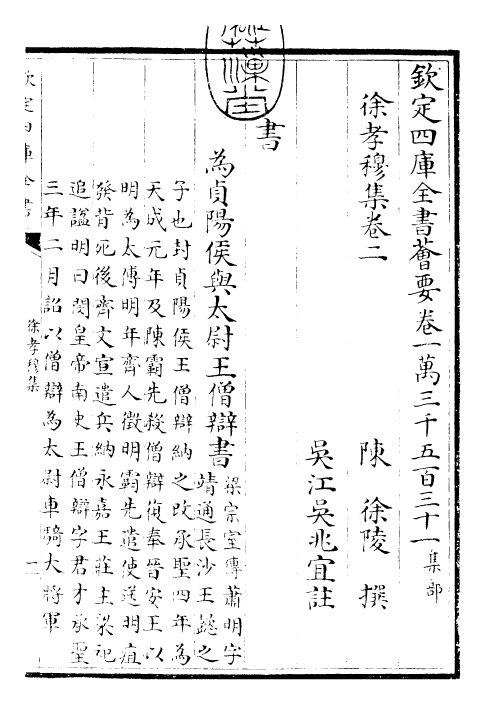 欽定四庫全書薈要卷一萬三千五百三十一集部
徐孝穆集卷二
陳 徐陵 撰
吳江吳兆宜註
書
為貞陽侯與太尉王僧辯書
梁宗室傳蕭明字
靖通長沙王懿之
子也封貞陽侯王僧辯納之改承聖四年為
天成元年及陳霸先殺僧辯復奉晉安王以
明為太傅明年齊人徵明霸先遣使送明疽
發背死後齊文宣遣兵納永嘉王莊主梁祀
追諡明曰閔皇帝南史王僧辯字君才承聖
三年二月詔以僧辯為太尉車騎大將軍
欽定四庫全書
徐孝穆集
一